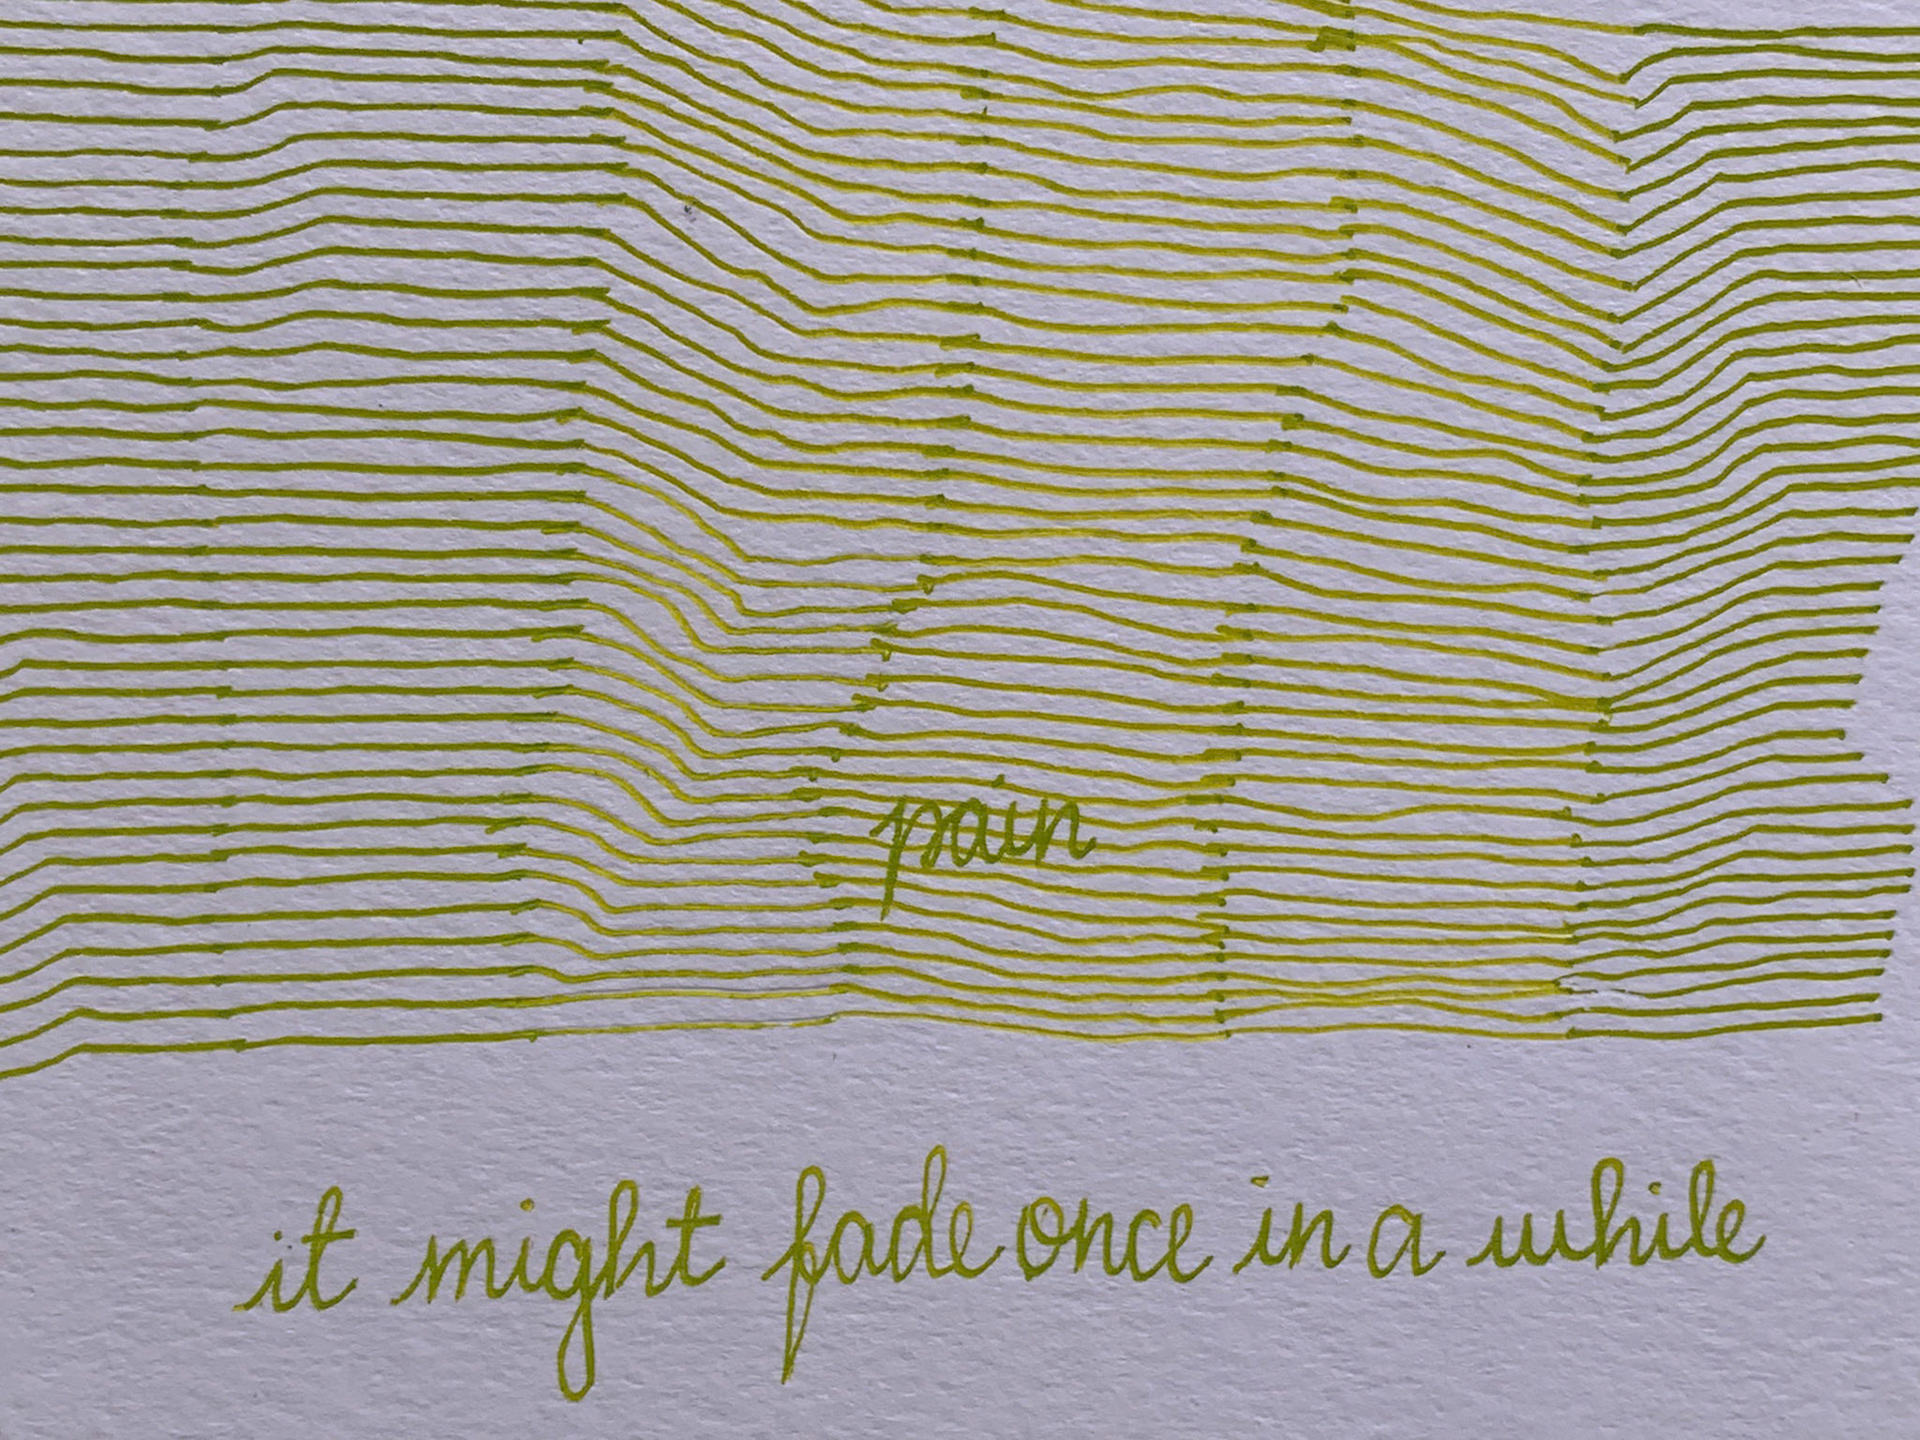 pain
it might fade once in a while